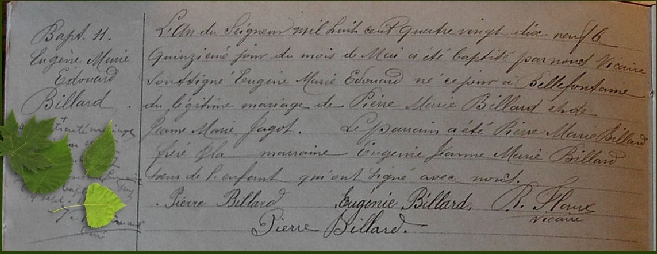 Bapt. 11.
Eugène Marie
Edouard
Billard
L'An du Seigneur mil huit cent quatre vingt dix-neuf le
Quinzième jour du mois de Mai a été baptisé par nous Vicaire
Soussigné Eugène Marie Edouard né ce jour à Bellefontaine
du légitime mariage de Pierre Marie Billard et de
Jeanne Marie Jagot. Le parrain a été Pierre Marie Billard
frère & la marraine Eugénie Jeanne Marie Billard
sœur de l'enfant qui ont signé avec nous.
Pierre Billard Eugénie Billard. R.
vicaire
Pierre Billard.